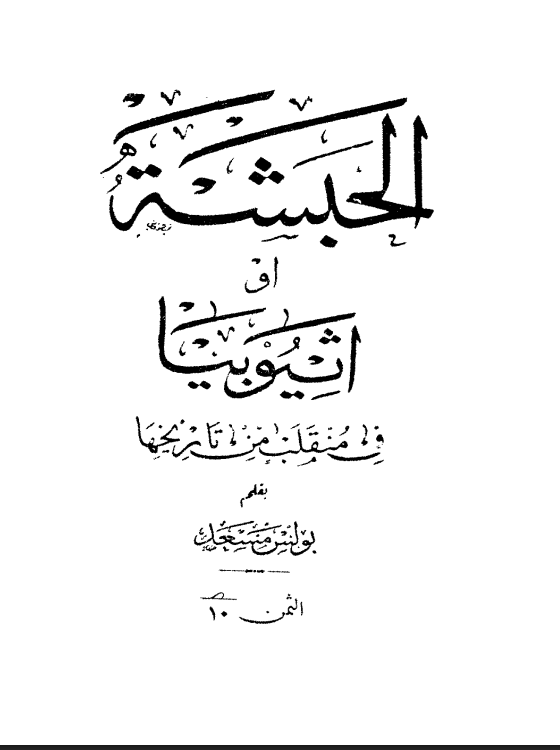 الحبشة
أو
اثيوبيا
في منقلب من تاريخها
بقلم
بولس مسعد
الثمن ١٠